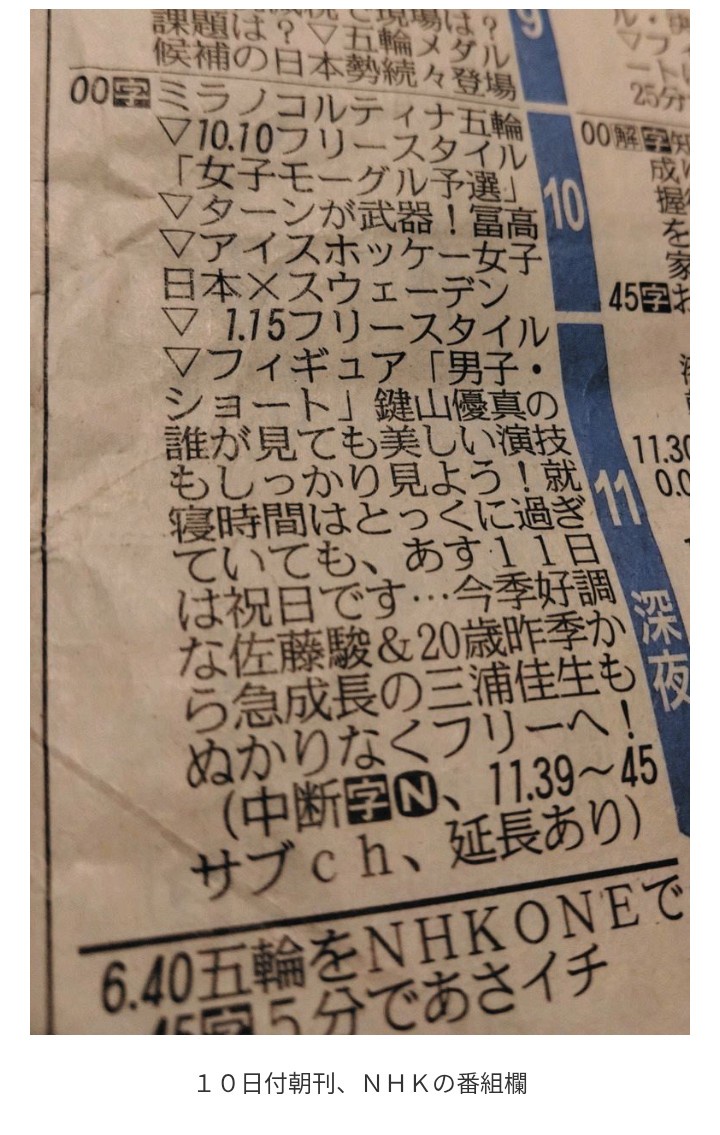 課題は？▽五輪メダル
候補の日本勢続々登場
9
00字ミラノコルティナ五輪
▽10.10フリースタイル
「女子モーグル予選」
▽ターンが武器！冨高
▽アイスホッケー女子
日本×スウェーデン
▽ 1.15フリースタイル
▽フィギュア「男子・
ショート」鍵山優真の
誰が見ても美しい演技
もしっかり見よう！就
寝時間はとっくに過ぎ
ていても、あす１１日
は祝日です…今季好調
な佐藤駿＆20歳昨季か
ら急成長の三浦佳生も
ぬかりなくフリーへ！
(中断字N、11.39〜45
サブｃｈ、延長あり)
6.40五輪をＮＨＫＯＮＥで
45字５分であさイチ
10
11
深夜
25分
00解字
成
握
を
家
45字お
11.30
0.0
１０日付朝刊、ＮＨＫの番組欄